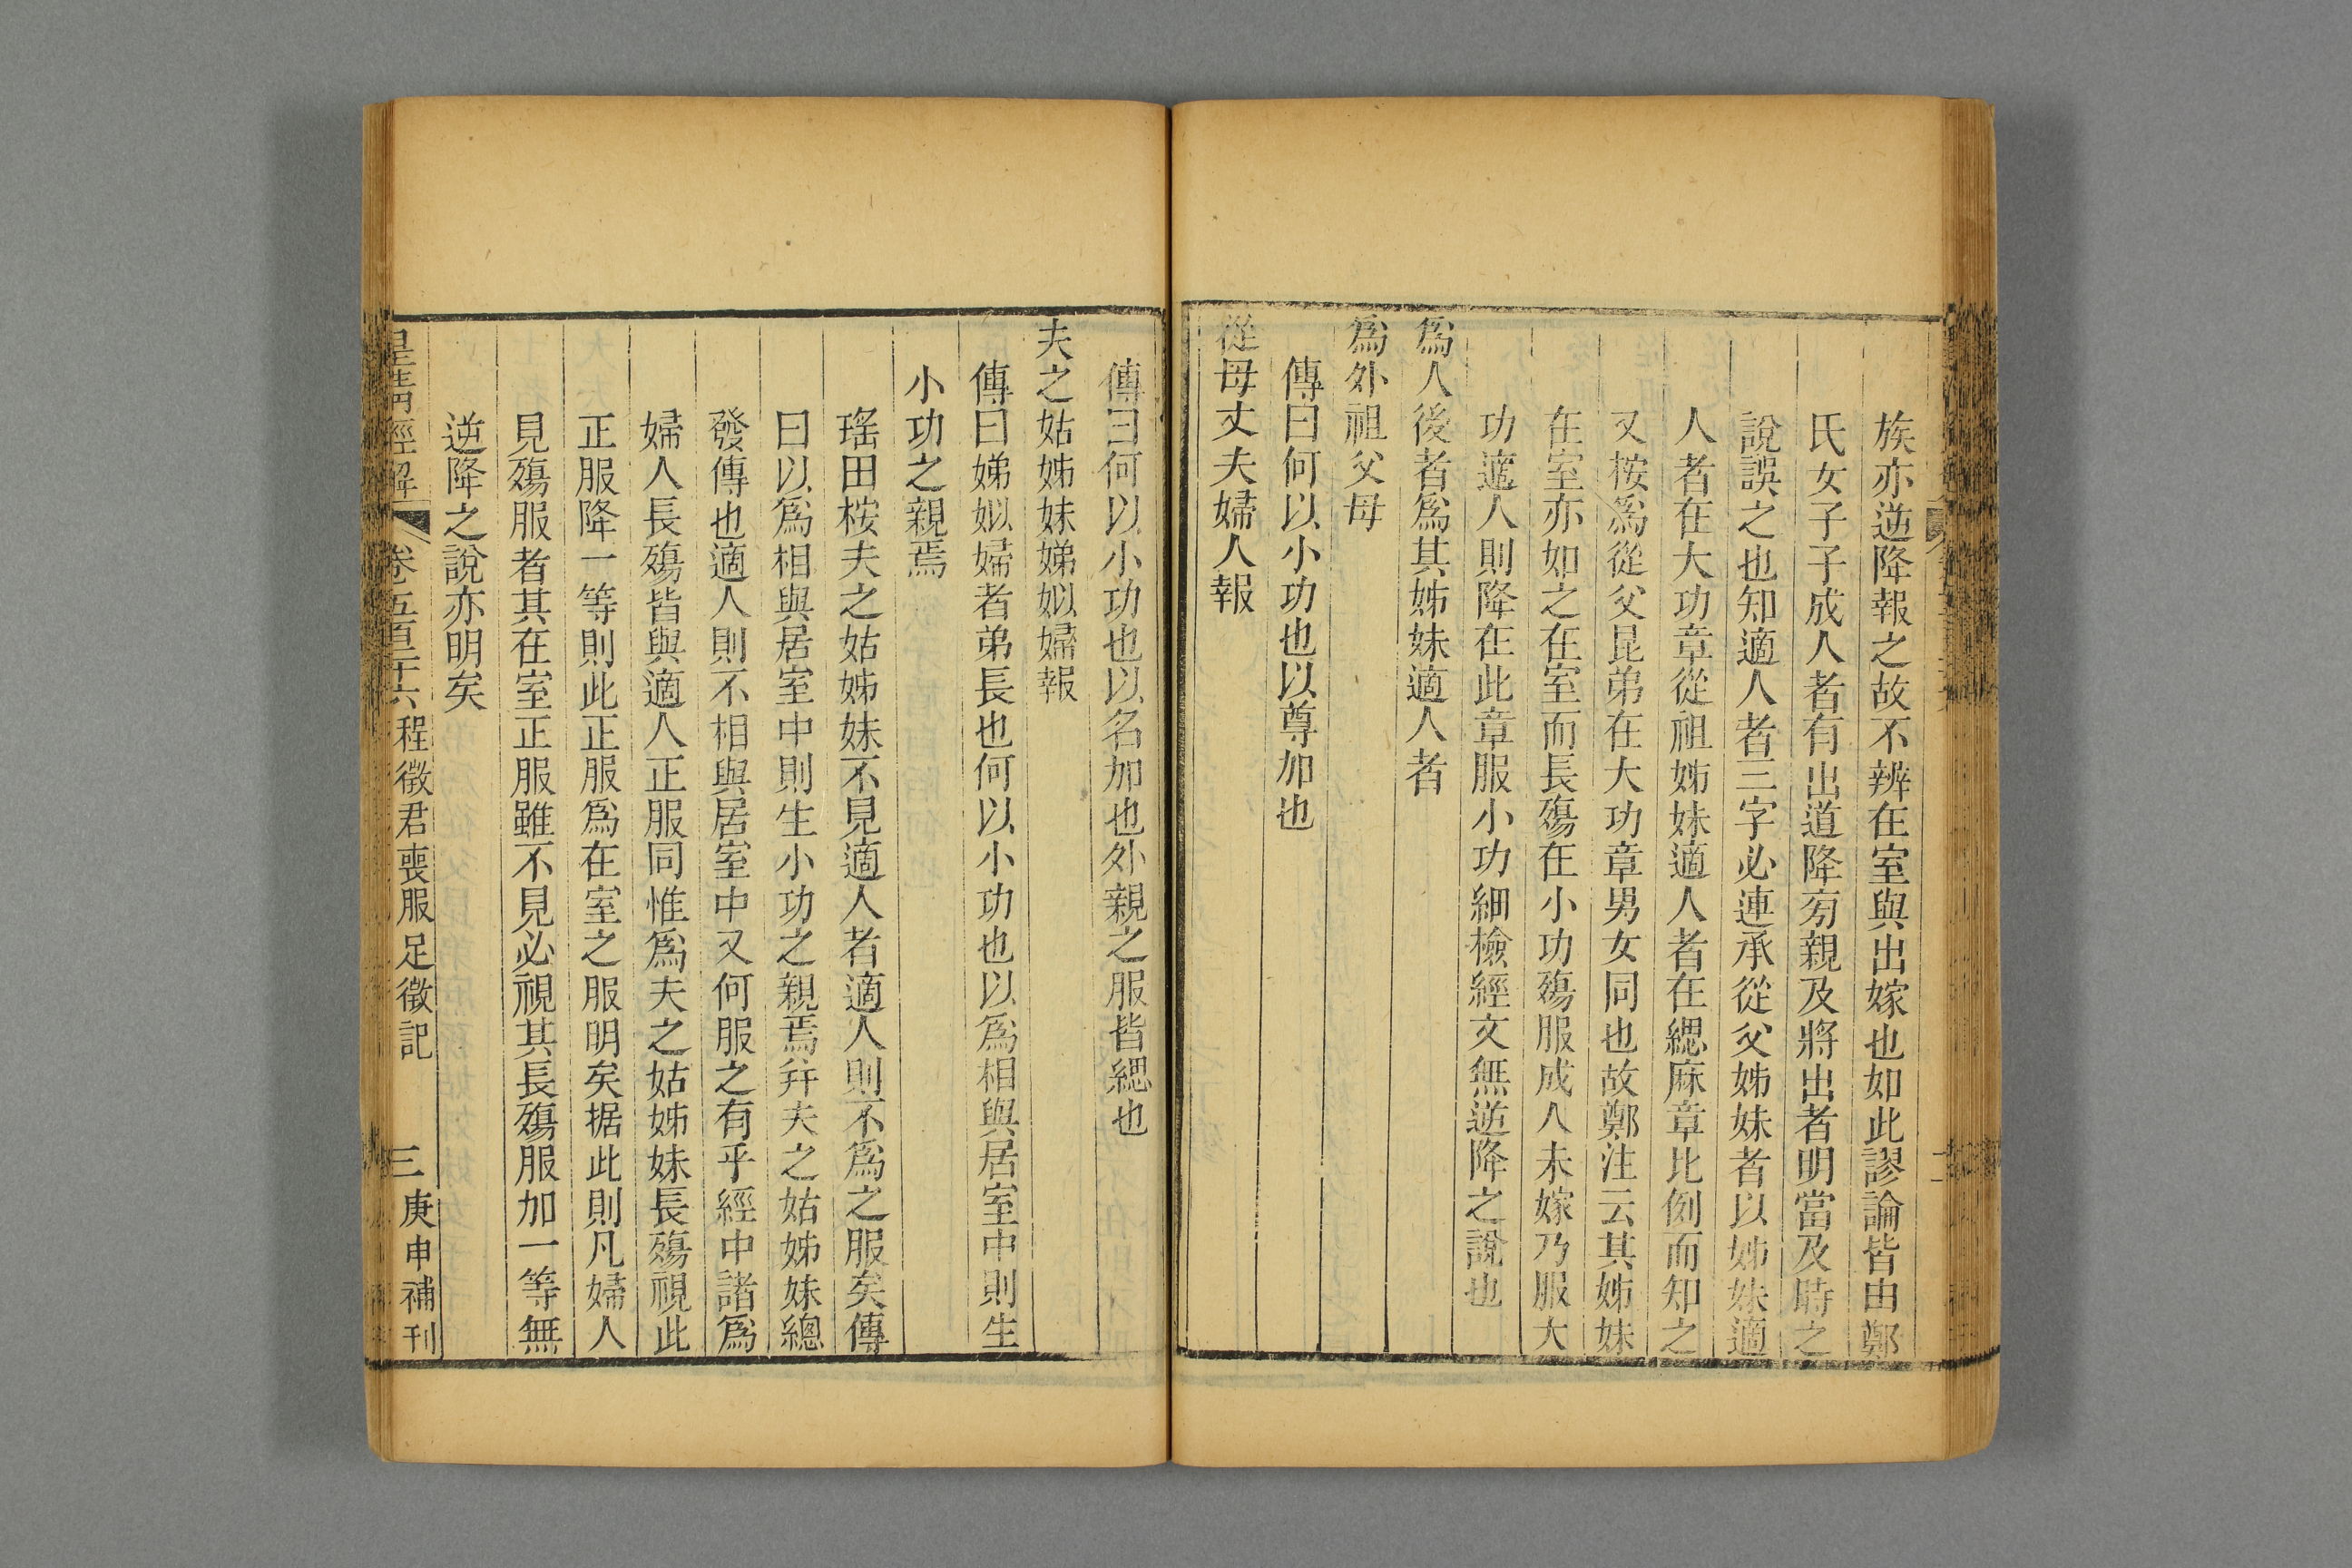 族亦逆降報之故不辨在室與出嫁也如此謬論皆由鄭
氏女子子成人者有出道降旁親及將出者明當及時之
說誤之也知適人者三字必連承從父姊妹者以姊妹適
人者在大功章從祖姊妹適人者在緦麻章比例而知之
又桉爲從父昆弟在大功章男女同也故鄭注云其姊妹
在室亦如之在室而長殤在小功殤服成人未嫁乃服大
功適人則降在此章服小功細檢經文無逆降之說也
爲人後者爲其姊妹適人者
爲外祖父母
傳曰何以小功也以尊加也
從母丈夫婦人報
傳曰何以小功也以名加也外親之服皆緦也
夫之姑姊妹娣姒婦報
傳曰娣姒婦者弟長也何以小功也以爲相與居室中則生
小功之親焉
瑤田桉夫之姑姊妹不見適人者適人則不爲之服矣傳
曰以爲相與居室中則生小功之親焉幷夫之姑姊妹總
發傳也適人則不相與居室中又何服之有乎經中諸爲
婦人長殤皆與適人正服同惟爲夫之姑姊妹長殤視此
正服降一等則此正服爲在室之服明矣据此則凡婦人
見殤服者其在室正服雖不見必視其長殤服加一等無
逆降之說亦明矣
皇清經解 卷五百二十六 程徵君喪服足徵記 三 庚申補刊